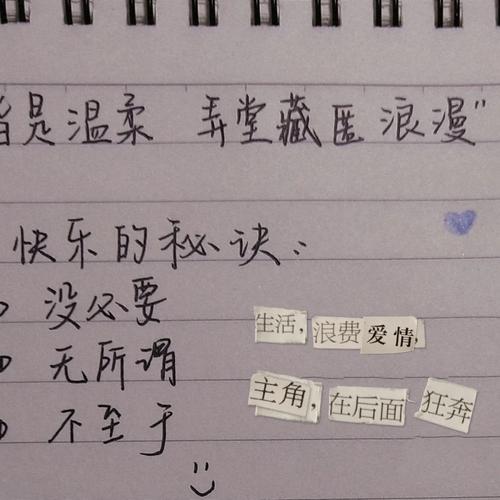 皆是温柔 弄堂藏匿浪漫"
快乐的秘诀：
没必要
无所谓
不至于
生活，浪费爱情，
主角，在后面狂奔